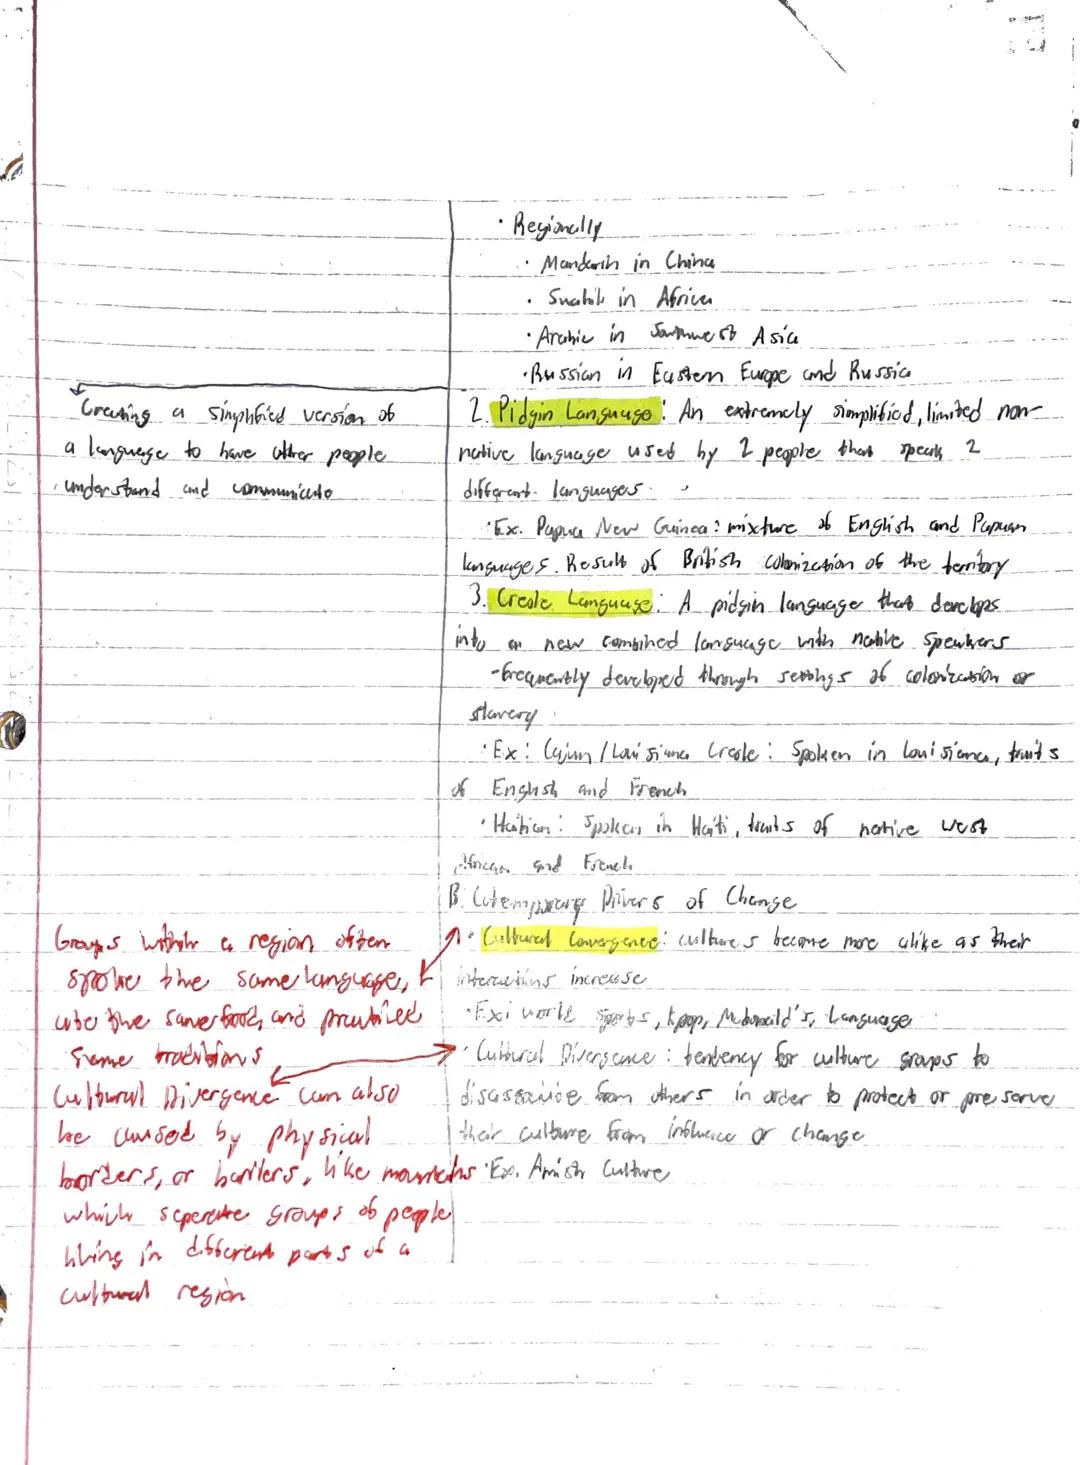 · Regionally
· Mandarin in China
· Swahili in Africa
· Arabic in Southwest Asia
· Russian in Eastern Europe and Russia
Creating a simplified version of
a language to have other people
understand and communicate
2. Pidgin Language: An extremely simplified, limited non-
native language used by 2 people that speak 2
different languages.
· Ex. Papua New Guinea: mixture of English and Papuan
languages. Result of British colonization of the territory
3. Creole Language: A pidgin language that develops
into a new combined language with native speakers
-frequently developed through settings of colonization or
slavery
· Ex: Cajun/Louisiana Creole: Spoken in Louisiana, traits
of English and French
· Haitian: Spoken in Haiti, traits of native West
African and French
B. Cotemporary Drivers of Change
· Cultural Convergence: cultures become more alike as their
interactions increase
· Ex: world sports, Kpop, McDonald's, Language
· Cultural Divergence: tendency for culture groups to
from others in order to protect or preserve
their culture from influence or change
· Ex. Amish Culture
Groups within a region often
spoke the same language,
ate the same food, and practiced
same traditions
Cultural Divergence can also
be caused by physical
borders, or barriers, like mountains
which seperate groups of people
living in different parts of a
cultural region